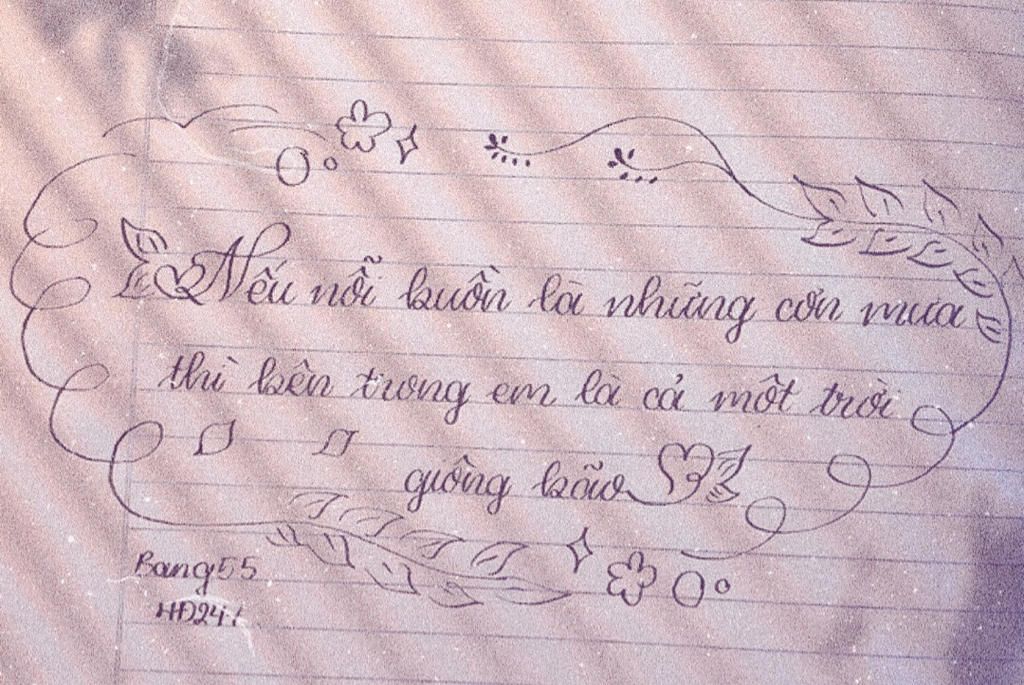 Nếu nỗi buồn là những cơn mưa
thì bên trong em là cả một trời
giông bão
Bang55
HĐ24